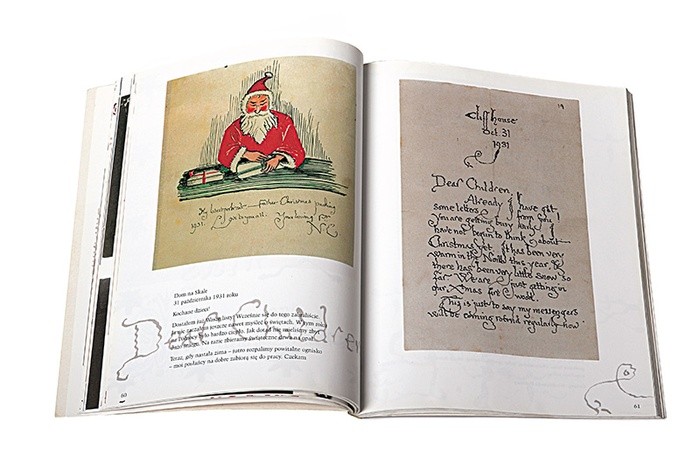 My latest portrait — Father Christmas packing
1931.
Your loving Fr
N C
Dom na Skale
31 października 1931 roku
Kochane dzieci!
Dostałem już Wasze listy! Wcześnie się do tego zabraliście.
Ja nie zacząłem jeszcze nawet myśleć o świętach. W tym roku
na Północy było bardzo ciepło. Jak dotąd nie mieliśmy zbyt
dużo śniegu. Na razie zbieramy świąteczne drwa na opał.
Teraz, gdy nastała zima – jutro rozpalimy powitalne ognisko
– moi posłańcy na dobre zabiorą się do pracy. Czekam
Dear Children
60
19
Cliff house
Oct. 31
1931
Dear Children,
Already I have got
some letters from you!
You are getting busy early. I
have not begun to think about
Christmas yet. It has been very
warm in the North this year, &
there has been very little snow so
far. We are just getting in
our Xmas fire wood.
This is just to say my messengers
will be coming round regularly now
61